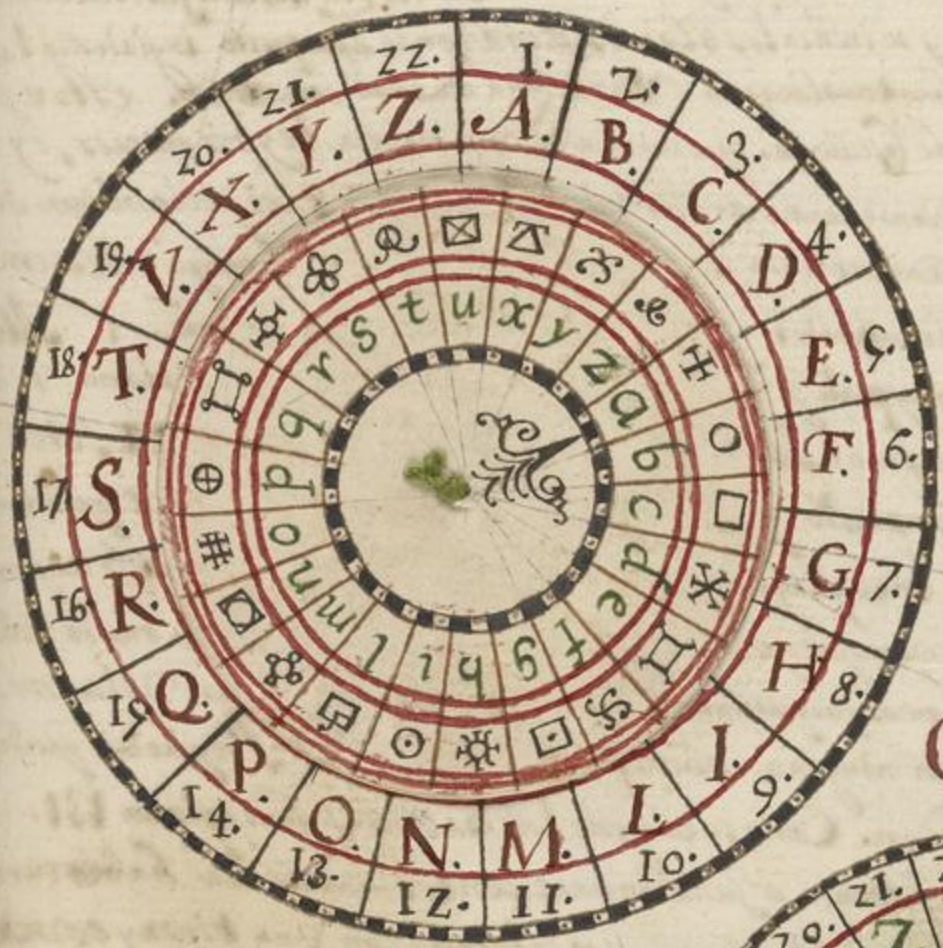 1. 2. 3. 4. 5. 6. 7. 8. 9. 10. 11. 12. 13. 14. 15 16. 17 18 19. 20. 21. 22.
A. B. C. D. E. F. G. H I. L. M. N. O. P. Q. R. S. T. V. X. Y. Z.
a b c d e f g h i l m n o p q r s t u x y z
20. 21.
Z